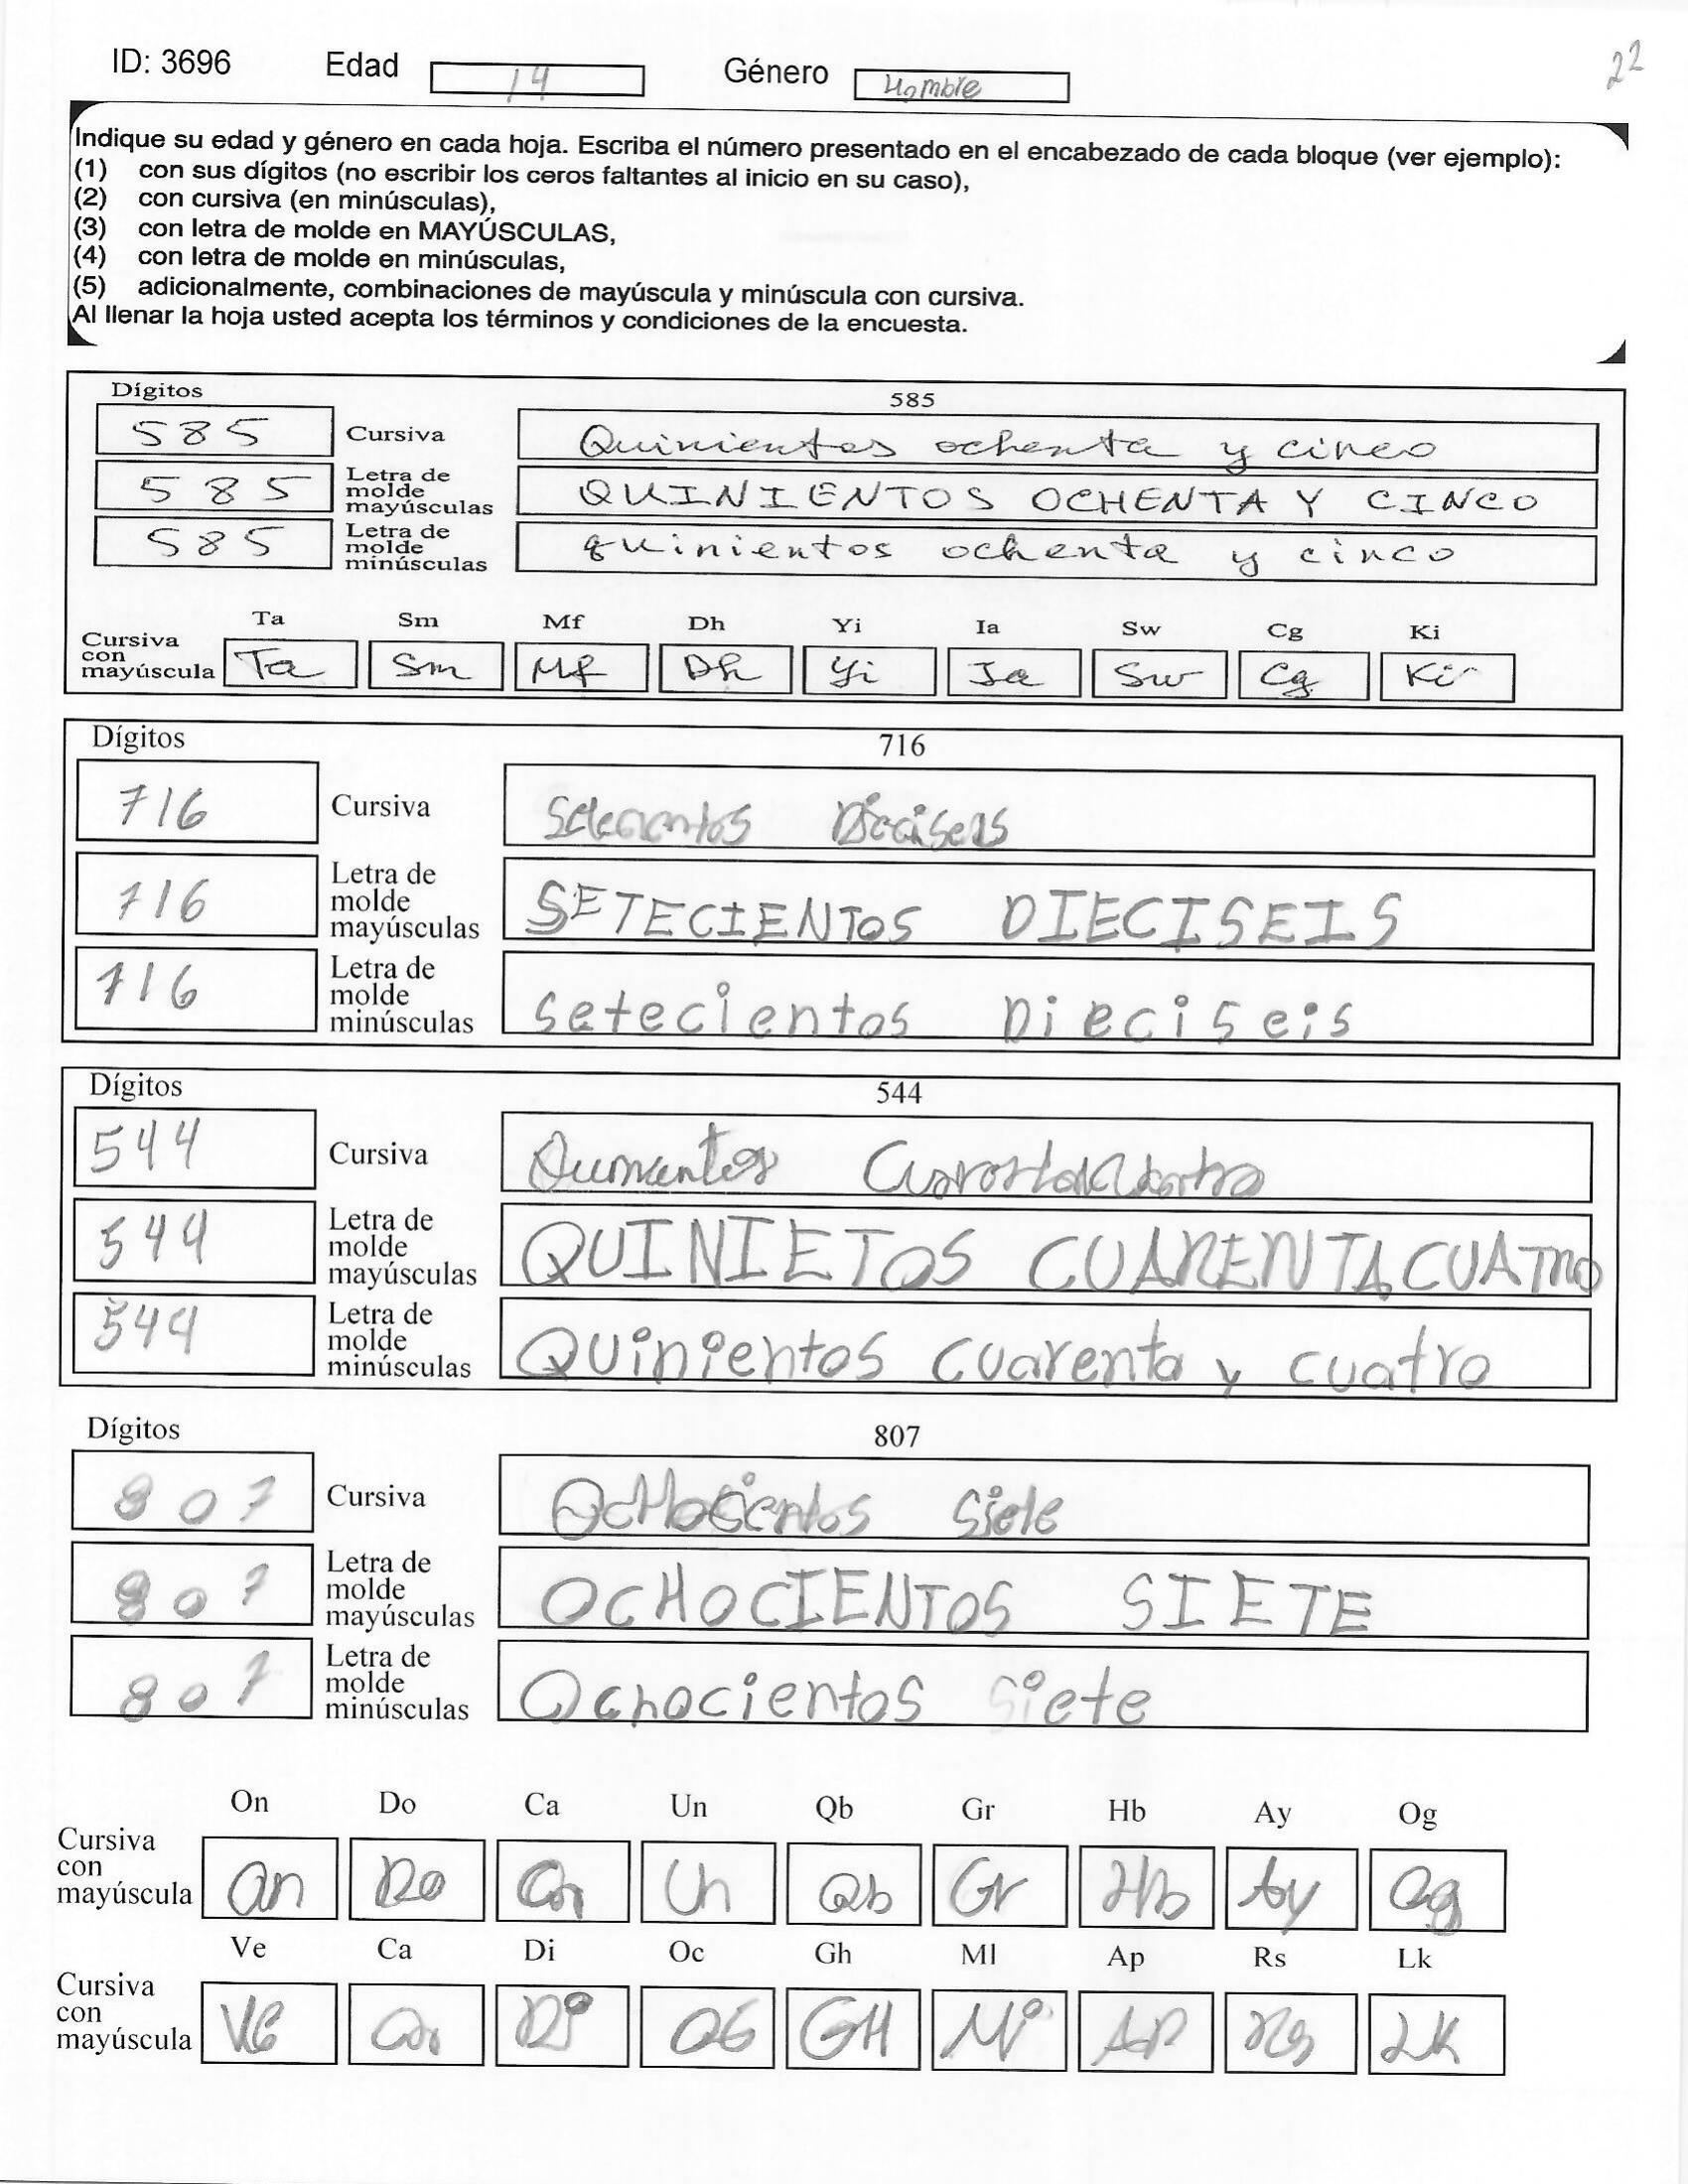 ID: 3696 Edad 14 Género Hombre 22
Indique su edad y género en cada hoja. Escriba el número presentado en el encabezado de cada bloque (ver ejemplo):
(1) con sus dígitos (no escribir los ceros faltantes al inicio en su caso),
(2) con cursiva (en minúsculas),
(3) con letra de molde en MAYÚSCULAS,
(4) con letra de molde en minúsculas,
(5) adicionalmente, combinaciones de mayúscula y minúscula con cursiva.
Al llenar la hoja usted acepta los términos y condiciones de la encuesta.
Dígitos 585
585 Cursiva Quinientos ochenta y cinco
585 Letra de molde mayúsculas QUINIENTOS OCHENTA Y CINCO
585 Letra de molde minúsculas quinientos ochenta y cinco
Ta Sm Mf Dh Yi Ia Sw Cg Ki
Cursiva con mayúscula Ta Sm Mf Dh Yi Ia Sw Cg Ki
Dígitos 716
716 Cursiva
716 Letra de molde mayúsculas SETECIENTOS DIECISEIS
716 Letra de molde minúsculas setecientos Dieciseis
Dígitos 544
544 Cursiva
544 Letra de molde mayúsculas QUINIETOS CUARENTACUATRO
544 Letra de molde minúsculas Quinientos cuarenta y cuatro
Dígitos 807
807 Cursiva OcHocientos siete
807 Letra de molde mayúsculas OCHOCIENTOS SIETE
807 Letra de molde minúsculas Ochocientos siete
On Do Ca Un Qb Gr Hb Ay Og
Cursiva con mayúscula On Do Ca Un Qb Gr Hb Ay Og
Ve Ca Di Oc Gh Ml Ap Rs Lk
Cursiva con mayúscula Ve Ca Di GH Mi AP Rs LK